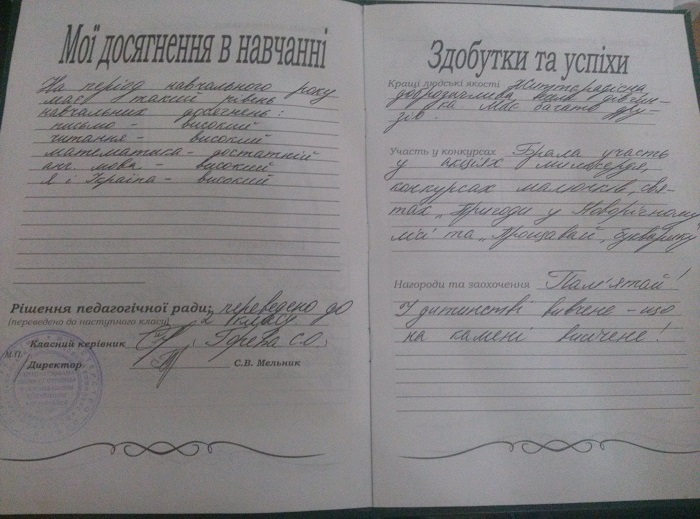 Мої досягнення в навчанні
На період навчального року
має такий рівень
навчальних досягнень:
письмо - високий
читання - високий
математика - достатній
анг. мова - високий
Я і Україна - високий
Рішення педагогічної ради: переведено до
(переведено до наступного класу) 2 класу
Класний керівник С.О.
М.П.
Директор С.В. Мельник
Здобутки та успіхи
Кращі людські якості Життєрадісна
доброзичлива дівчин-
ка має багато дру-
зів.
Участь у конкурсах Брала участь
у акціях милосердя,
конкурсах малюнків, свя-
тах „Пригоди у Новорічному
лісі та „Прощавай, букварику"
Нагороди та заохочення Пам'ятай!
У дитинстві вивчене - що
на камені висічене!